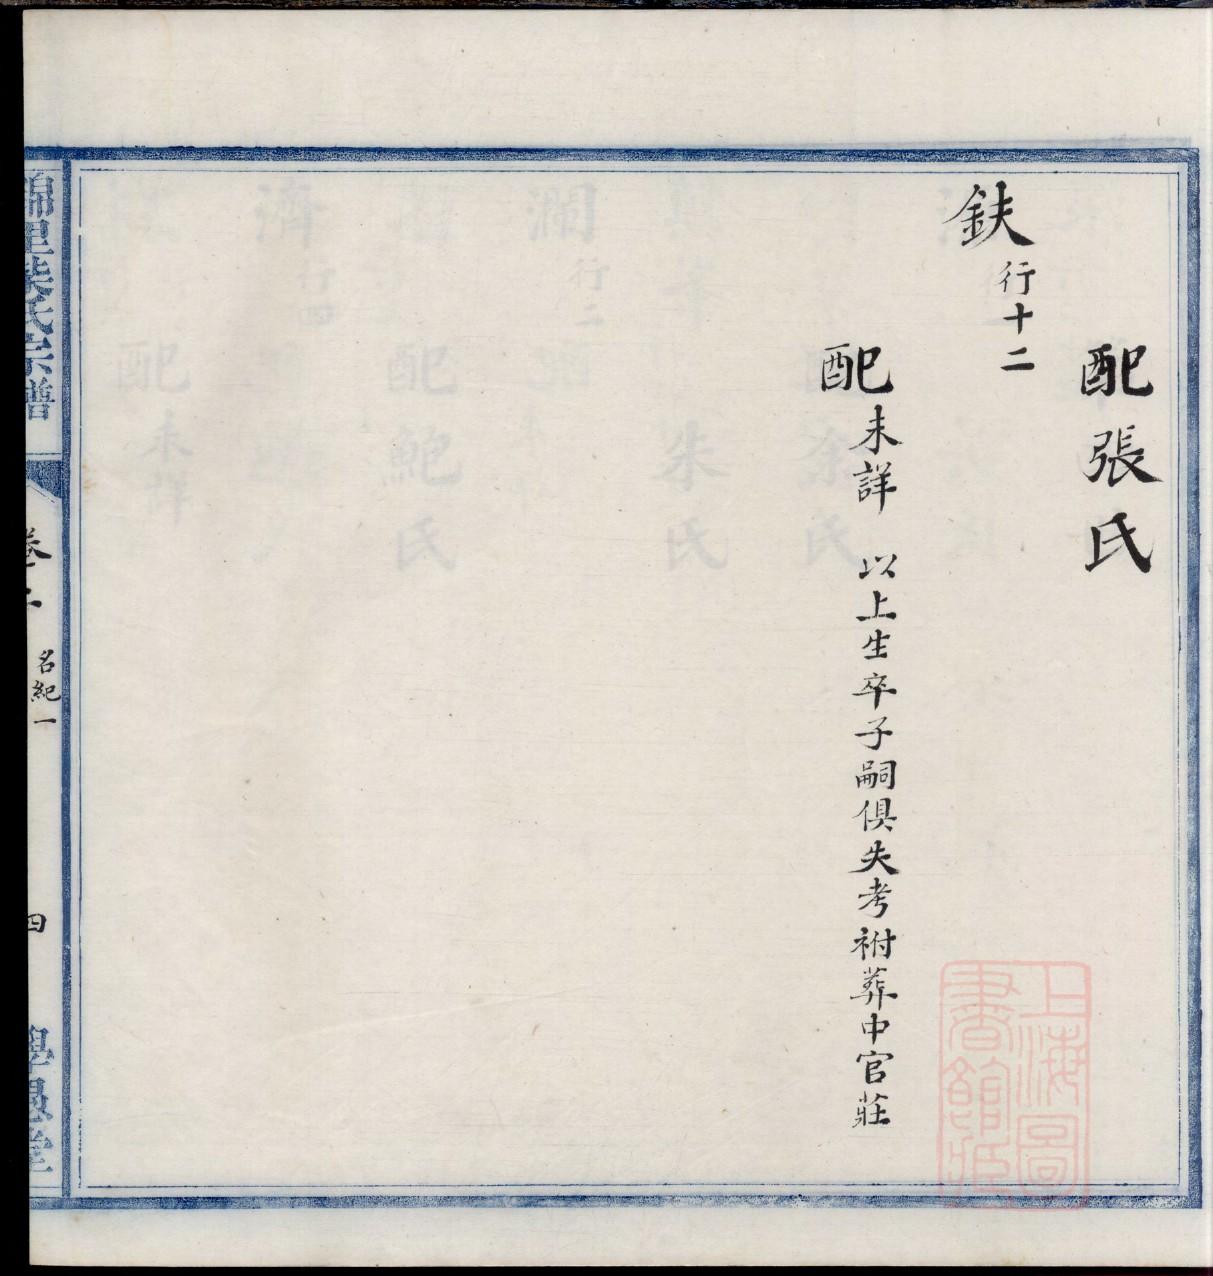 配張氏
鈇行十二
配未詳 以上生卒子嗣俱失考祔葬中官莊
氏宗譜
名紀一
四
上海圖書館藏